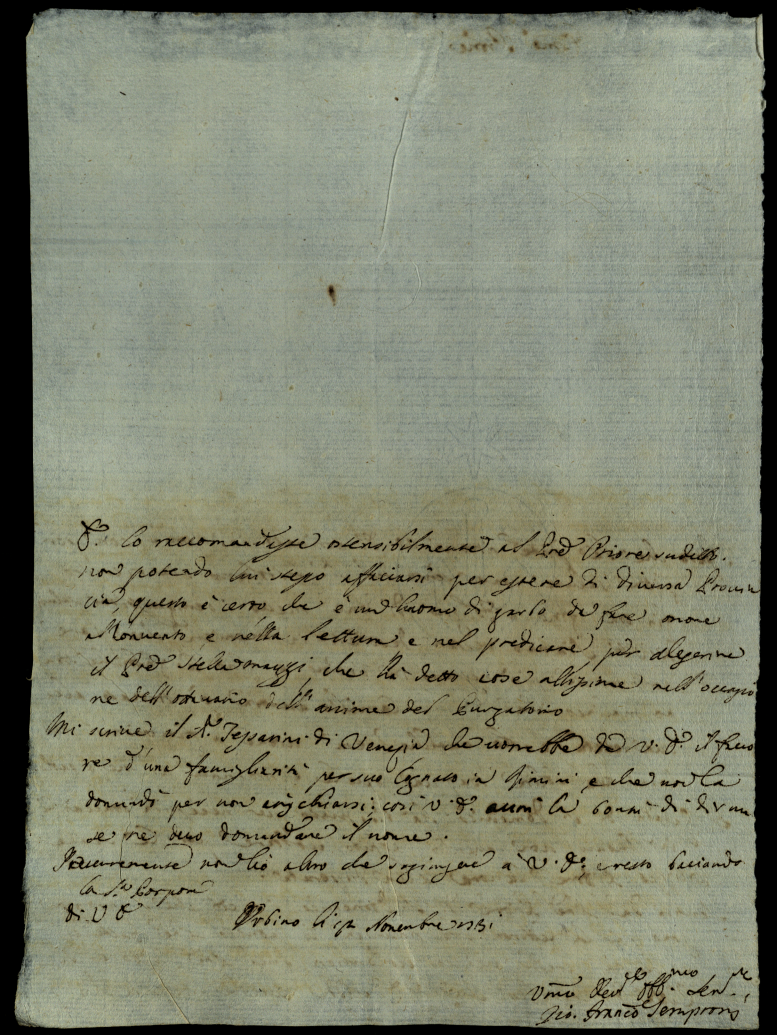 E. lo raccomandasse ostensibilmente al Prè Priore sudetto.
non potendo lui stesso affaciarsi per essere di diversa Provin
cia, questo è certo che è un huomo di garbo da fare onore
al Convento e nella lettura e nel predicare
il Prè che hà detto cose altissime nell'occasio
ne dell'ottavario dell'anime del Purgatorio
Mi scrive il Sr Tessarini di Venezia che vorrebbe da V. E. il favo
re d'una famigliarità per suo Cognato in Rimini e che non la
domandi per non così V. E. la bontà di dirmi
se ne devo domandare il nome.
non hò altro che sogiungere à V. E. e resto baciando
la Sra Porpora
di V E
Urbino li Novembre 1731
Umo Devmo Obbmo Serre
Gio. Franco Semproni